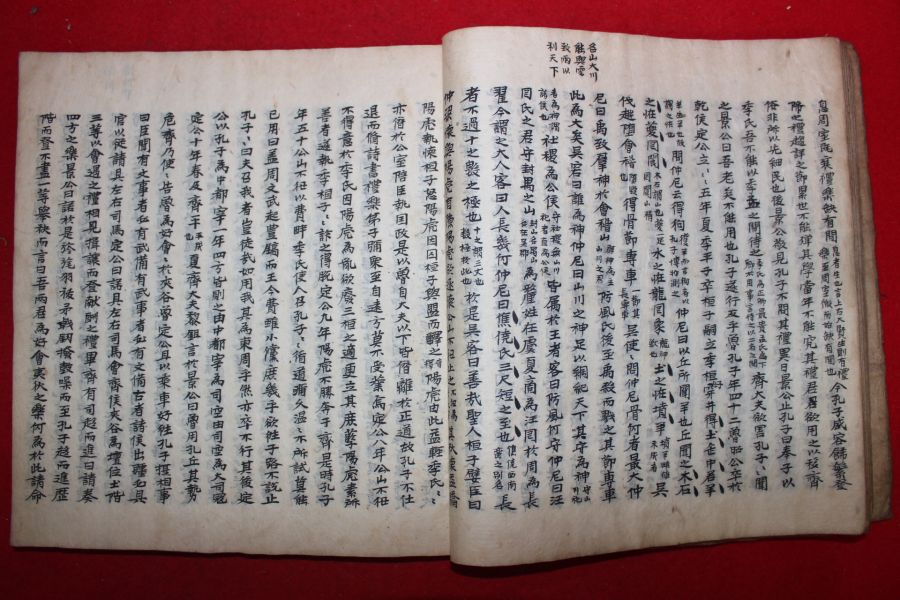 名山大川
能興雲
致雨以
利天下
息周室旣衰禮樂缺有間 今孔子盛容飾繁登
降之禮趨詳之節累世不能殫其學當年不能究其禮君欲用之以移齊
俗非所以先細民也後景公敬見孔子不問其禮異日景公止孔子曰奉子以
季氏吾不能以季孟之間待之 齊大夫欲害孔子〻聞
之景公曰吾老矣不能用也孔子遂行反乎魯孔子年四十二魯昭公卒於
乾侯定公立〻五年夏季平子卒桓子嗣立季桓子穿井得土缶中若羊
問仲尼云得狗 仲尼曰以丘所聞羊也丘聞之木石
之怪夔罔閬 水之怪龍罔象 土之怪墳羊 吳
伐越墮會稽 得骨節專車 吳使〻問仲尼骨何者最大仲
尼曰禹致群神於會稽山 防風氏後至禹殺而戮之其節專車
此為大矣吳客曰誰為神仲尼曰山川之神足以綱紀天下其守為神
社稷為公侯 皆屬於王者客曰防風何守仲尼曰汪
罔氏之君守封禺之山 為釐姓在虞夏商為汪罔於周為長
翟今謂之大人客曰人長幾何仲尼曰僬僥氏三尺短之至也 長
者不過十之數之極也 於是吳客曰善哉聖人桓子嬖臣曰
仲梁懷與陽虎有隙陽虎欲逐懷公山不狃止之 其秋懷益驕
陽虎執懷桓子怒陽虎因囚桓子與盟而醳之 陽虎由此益輕季氏〻
亦僭於公室陪臣執國政是以魯自大夫以下皆僭離於正道故孔子不仕
退而脩詩書禮樂弟子彌衆至自遠方莫不受業焉定公八年公山不狃
不得意於季氏因陽虎為亂欲廢三桓之適更立其庶孽陽虎素所
善者遂執季桓子〻詐之得脫定公九年陽虎不勝奔于齊是時孔子
年五十公山不狃以費畔季氏使人召孔子〻循道彌久溫〻無所試莫能
已用曰盖周文武起豊鎬而王今費雖小儻庶幾乎欲往子路不說止
孔子〻曰夫召我者豈徒哉如用我其為東周乎然亦卒不行其後定
公以孔子為中都宰一年四方皆則之由中都宰為司空由司空為大司寇
定公十年春及齊平 夏齊大夫黎鉏言於景公曰魯用孔丘其勢
危齊乃使〻告魯為好會〻於夾谷魯定公且以乘車好往孔子攝相事
曰臣聞有文事者必有武備有武事者必有文備古者諸侯出疆必具
官以從請具左右司馬定公曰諾具左右司馬會齊侯夾谷為壇位土階
三等以會遇之禮相見揖讓而登獻酬之禮畢齊有司趨而進曰請奏
四方之樂景公曰諾於是旍旄羽袚矛戟劍撥鼓噪而至孔子趨而進歷
階而登不盡一等擧袂而言曰吾兩君為好會夷狄之樂何為於此請命